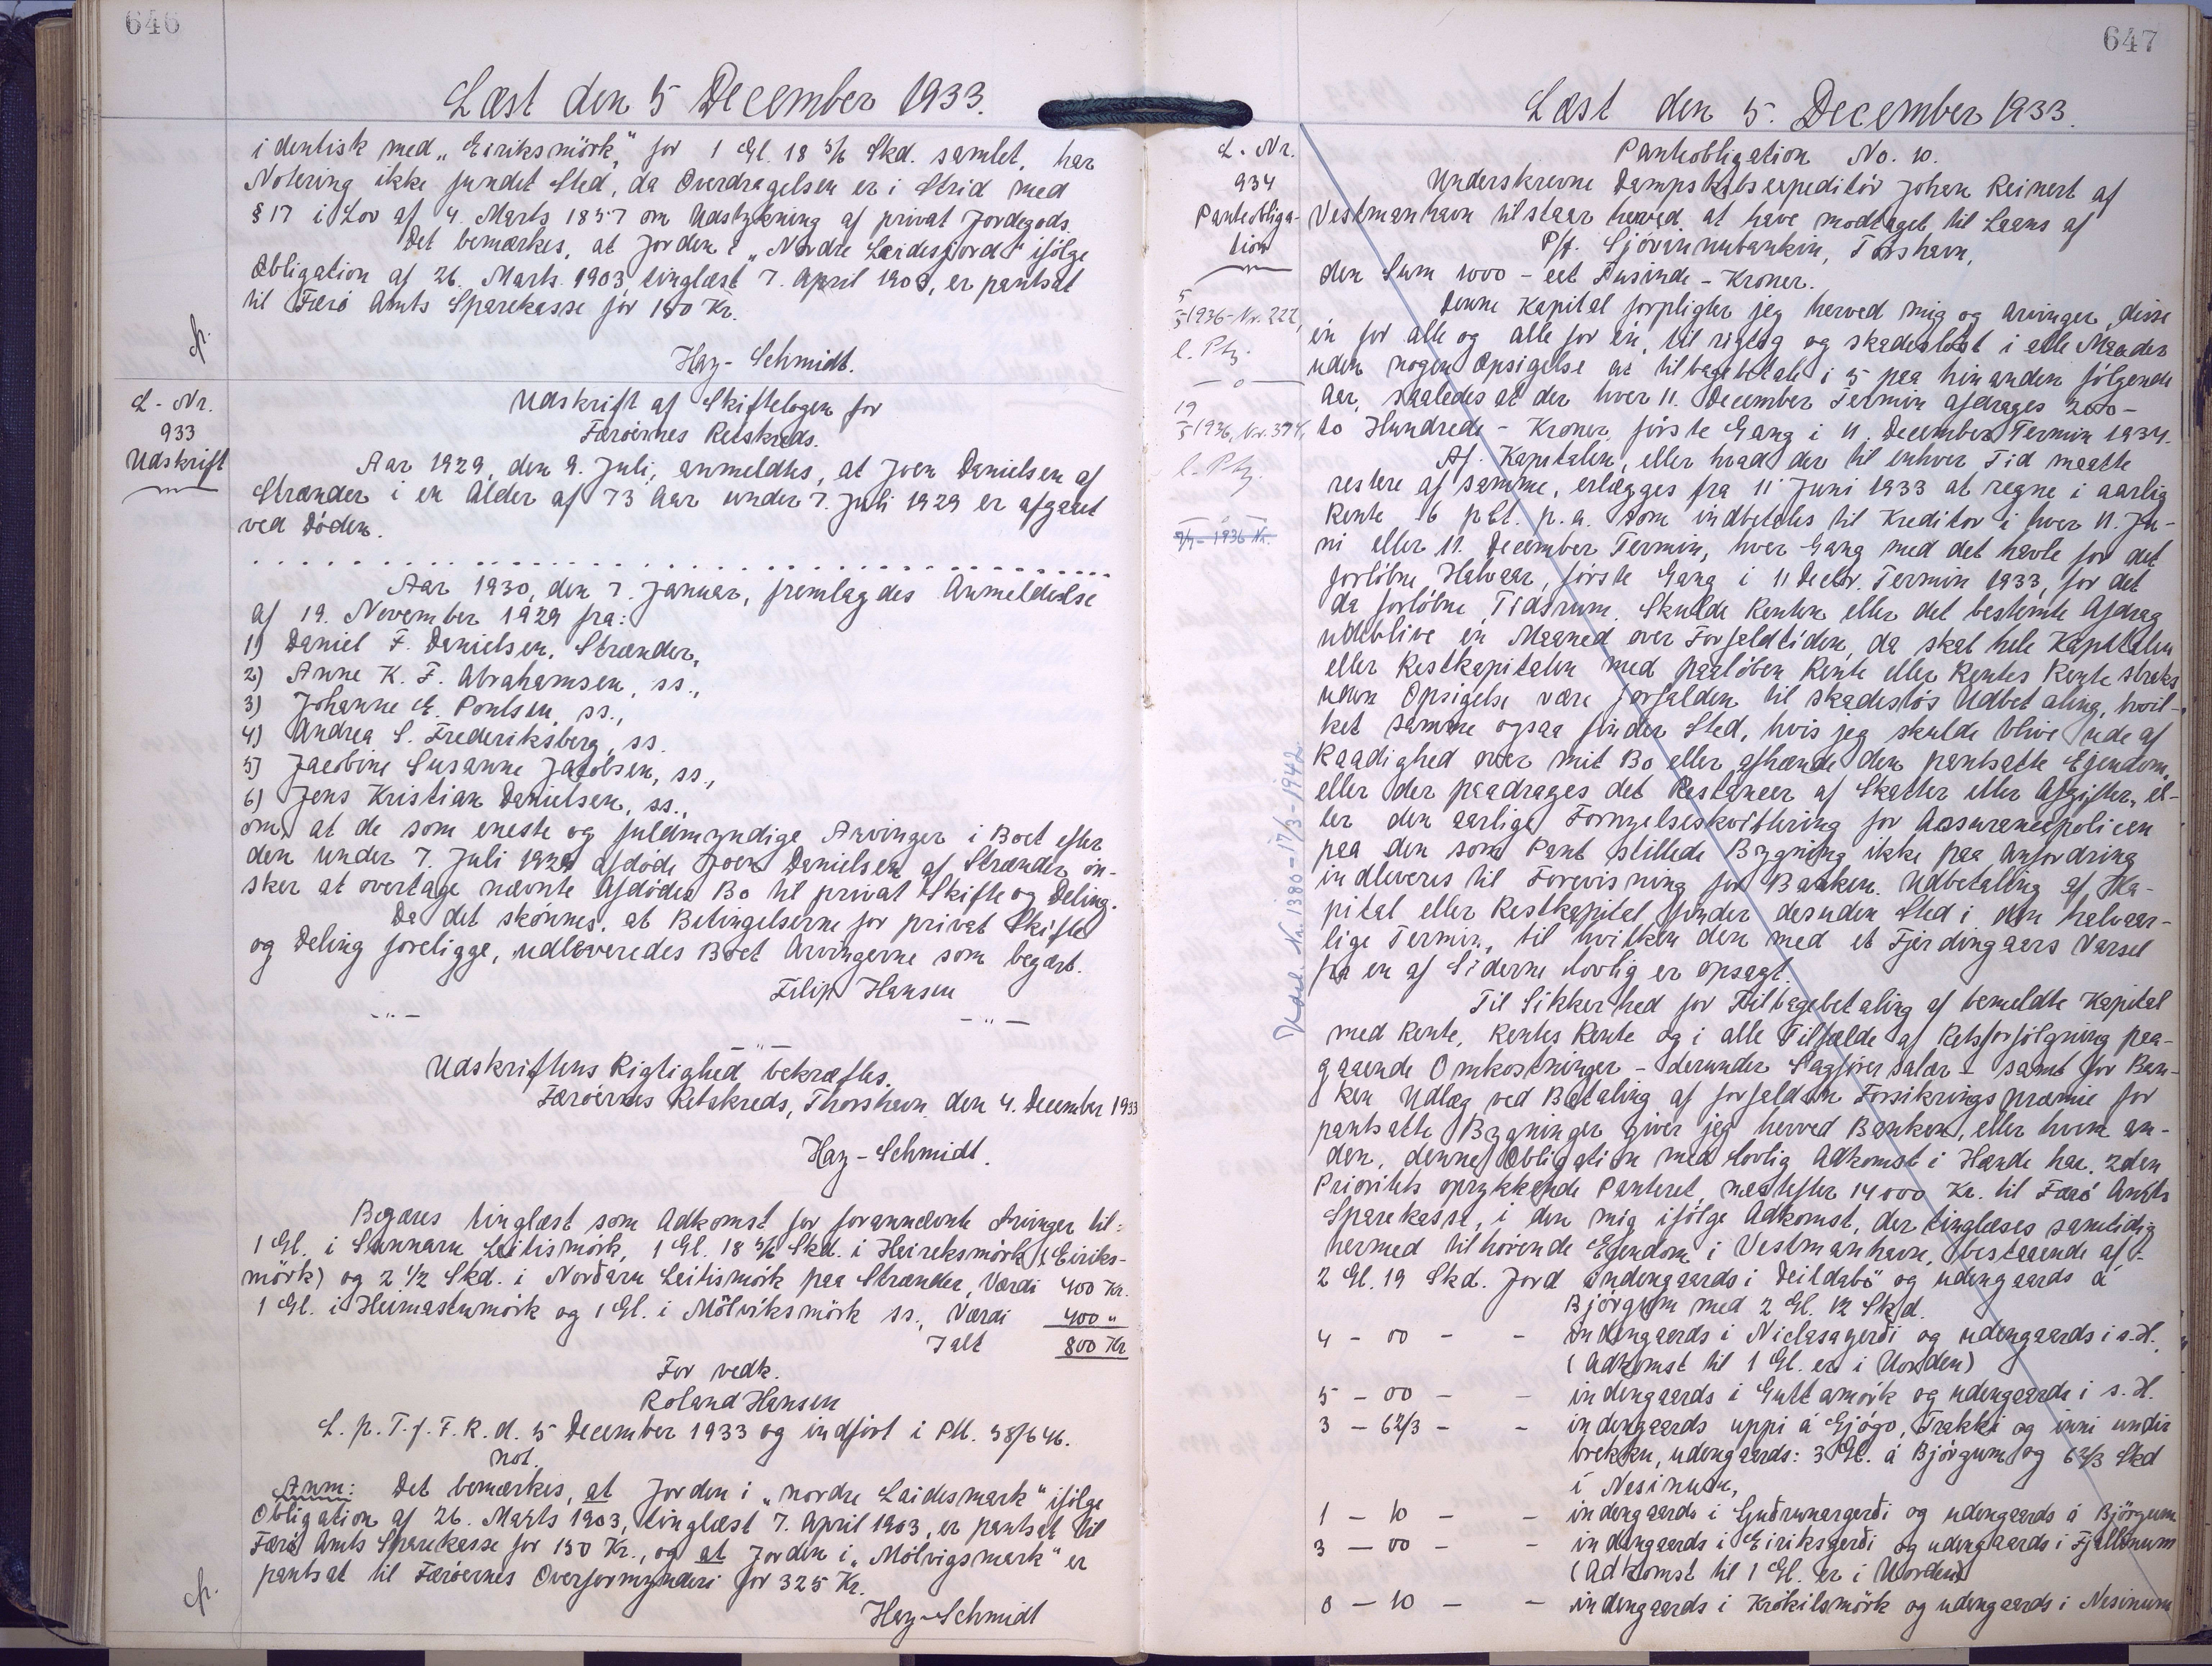 646
Læst den 5 December 1933.
identisk med „Eiriksmörk“, for 1 Gl. 18 5/6 Skd. samlet, har
Notering ikke fundet Sted, da Overdragelsen er i Strid med
§ 17 i Lov af 4. Marts 1857 om Udstykning af privat Jordegods.
Det bemærkes, at Jorden i „Nordre Leidesjord“ ifølge
Obligation af 26. Marts 1903, tinglæst 7. April 1903, er pantsat
til Færö Amts Sparekasse för 150 Kr.
Hay-Schmidt.
L. Nr.
933
Udskrift
Udskrift af Skiftebogen for
Færöernes Retskreds.
Aar 1929, den 9. Juli, anmeldtes, at Joen Danielsen af
Strænder i en Alder af 73 Aar under 7. Juli 1929 er afgaaet
ved Döden.
Aar 1930, den 7. Januar, fremlagdes Anmeldelse
af 19. November 1929 fra:
1) Daniel F. Danielsen, Strænder,
2) Anne K. F. Abrahamsen, ss.,
3) Johanne E. Poulsen, ss.,
4) Andrea S. Frederiksberg, ss.
5) Jacobine Susanne Jacobsen, ss.,
6) Jens Kristian Danielsen, ss.,
om, at de som eneste og fuldmyndige Arvinger i Boet efter
den under 7. Juli 1929 afdöde Joen Danielsen af Strænder ön-
sker at overtage nævnte Afdödes Bo til privat Skifte og Deling.
Da det skönnes, at Betingelserne for privat Skifte
og Deling foreligge, udleveredes Boet Arvingerne som begært.
Filip Hansen
- " -
- " -
- " -
Udskriftens Rigtighed bekræftes.
Færöernes Retskreds, Thorshavn den 4. December 1933
Hay-Schmidt.
Begæres tinglæst som Adkomst for forannævnte Arvinger til:
1 Gl. i Sunnaru Leitismörk, 1 Gl. 18 5/6 Skd. i Heireksmörk (Eiriks-
mörk) og 2 1/2 Skd. i Norðaru Leitismörk paa Strænder, Værdi 400 Kr.
1 Gl. i Heimastumörk og 1 Gl. i Mölviksmörk ss., Værdi 400 "
Ialt 800 Kr
For vedk.
Roland Hansen
L. p. T. f. F. R. d. 5 December 1933 og indfört i Ptl. 38/646.
not.
Anm: Det bemærkes, at Jorden i „nordre Laidesmark“ ifölge
Obligation af 26. Marts 1903, tinglæst 7. April 1903, er pantsat til
Færö Amts Sparekasse for 150 Kr., og at Jorden i „Mölvigsmark“ er
pantsat til Færöernes Overformynderi for 325 Kr.
Hay-Schmidt
647
Læst den 5. December 1933.
L. Nr.
934
Pantobliga-
tion
5/3-1936-Nr. 222,
l. Ptg.
19/5 1936, Nr. 374,
l. Ptg.
1936 Nr.
Udsl. Nr. 1380 - 17/3-1942.
Pantobligation No. 10.
Underskrevne Dampskibsexpeditör Johan Reinert af
Vestmanhavn tilstaar herved at have modtaget til Laans af
P/f. Sjóvinnubankin, Tórshavn,
den Sum 1000 - eet Tusinde - Kroner.
Denne Kapital forpligter jeg herved mig og Arvinger, disse
én for alle og alle for én, til rigtig og skadeslöst i alle Maader
uden nogen Opsigelse at tilbagebetale i 5 paa hinanden fölgende
Aar, saaledes at der hver 11. December Termin afdrages 200 -
to Hundrede - Kroner, förste Gang i 11. December Termin 1934.
Af Kapitalen, eller hvad der til enhver Tid maatte
restere af samme, erlægges fra 11 Juni 1933 at regne i aarlig
Rente 6 pCt. p.a. som indbetales til Kreditor i hver 11. Ju-
ni eller 11. December Termin, hver Gang med det halve for det
forlöbne Halvaar, förste Gang i 11 Decbr. Termin 1933, for det
da forlöbne Tidsrum. Skulde Renten eller det bestemte Afdrag
udeblive én Maaned over Forfaldtiden, da skal hele Kapitalen
eller Restkapitalen med paalöben Rente eller Rentes Rente straks
uden Opsigelse være forfalden til skadeslös Udbetaling, hvil-
ket samme ogsaa finder Sted, hvis jeg skulde blive ude af
Raadighed over mit Bo eller afhænde den pantsatte Ejendom,
eller der paadrages det Restancer af Skatter eller Afgifter, el-
ler den aarlige Fornyelseskvittering for Assurancepolicen
paa den som Pant stillede Bygning ikke paa Anfordring
indleveres til Forevisning for Banken. Udbetaling af Ka-
pital eller Restkapital finder desuden Sted i den halvaar-
lige Termin, til hvilken den med et Fjerdingaars Varsel
fra en af Siderne lovlig er opsagt.
Til Sikkerhed for Tilbagebetaling af bemeldte Kapital
med Rente, Rentes Rente og i alle Tilfælde af Retsforfölgning paa-
gaaende Omkostninger - derunder Sagförersalær - samt for Ban-
ken Udlæg ved Betaling af forfalden Forsikringspræmie for
pantsatte Bygninger giver jeg herved Banken, eller hvem an-
den, denne Obligation med lovlig Adkomst i Hænde har, 2den
Prioritets oprykkende Panteret næstefter 14000 Kr. til Færö Amts
Sparekasse, i den mig ifölge Adkomst, der tinglæses samtidig
hermed tilhörende Ejendom i Vestmanhavn, bestaaende af:
2 Gl. 19 Skd. Jord indengaards i Deildabö og udengaards á
Björgum med 2 Gl. 12 Skd.
4 - 00 - - indengaards i Niclasagerði og udengaards i s. H.
(Adkomst til 1 Gl. er i Uorden)
5 - 00 - - indengaards i Guttamörk og udengaards i s. H.
3 - 6 2/3 - - indengaards uppi á Gjógv, Trakki og inni undir
brekku, udengaards: 3 Gl. á Björgum og 6 2/3 Skd
í Nesinum,
1 - 10 - - indengaards i Guðrunargerði og udengaards á Björgum
3 - 00 - - indengaards i Eiriksgerði og udengaards i Fjallinum
(Adkomst til 1 Gl. er i Uorden)
0 - 10 - - indengaards i Krókilsmörk og udengaards i Nesinum